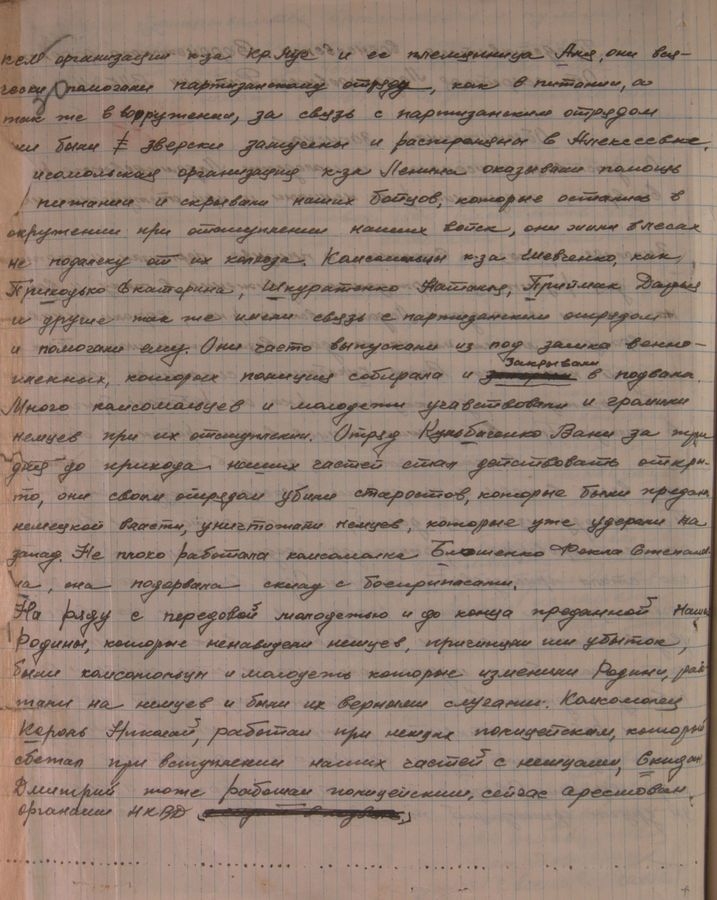 ксм организации к-за Кр Яус и ее племянница Аня, они вся-
чески помогали партизанскому отряду, как в питании, а
так же в вооружении, за связь с партизанским отрядом
ни были зверски замучены и расстреляны в Алексеевке.
исомольская организация к-за Ленина оказывали помощь
питании и скрывали наших бойцов, которые остались в
окружении при отступлении наших войск, они жили в лесах
не подалеку от их колхоза. Комсомольцы к-за Шевченко, как
Приходько Екатерина, Шкуратенко Наталия, Приймак Дарья
и другие так же имели связь с партизанским отрядом
и помогали ему. Они часто выпускали из под замка военно-
пленных, которых полиция собирала и закрывали в подвал.
Много комсомольцев и молодежи учавствовали и громили
немцев при их отступлении. Отряд Кульбаченко Вани за три
дня до прихода наших частей стал действовать откры-
то, они своим отрядом убили старостов, которые были преданы
немецкой власти, уничтожали немцев, которые уже удерали на
запад. Не плохо работала комсомолка Блошенко Фекла Степанов
на, она подорвала склад с боеприпасами.
На ряду с передовой молодежью и до конца преданной нашей
Родины, которые ненавидели немцев, причиняли им убыток,
были комсомольцы и молодежь которые изменили Родине, рабо
тали на немцев и были их верными слугами. Комсомолец
Король Николай, работал при немцах полицейским, который
сбежал при вступлении наших частей с немцами, Скидан
Дмитрий тоже работал полицейским, сейчас арестован
органами НКВД